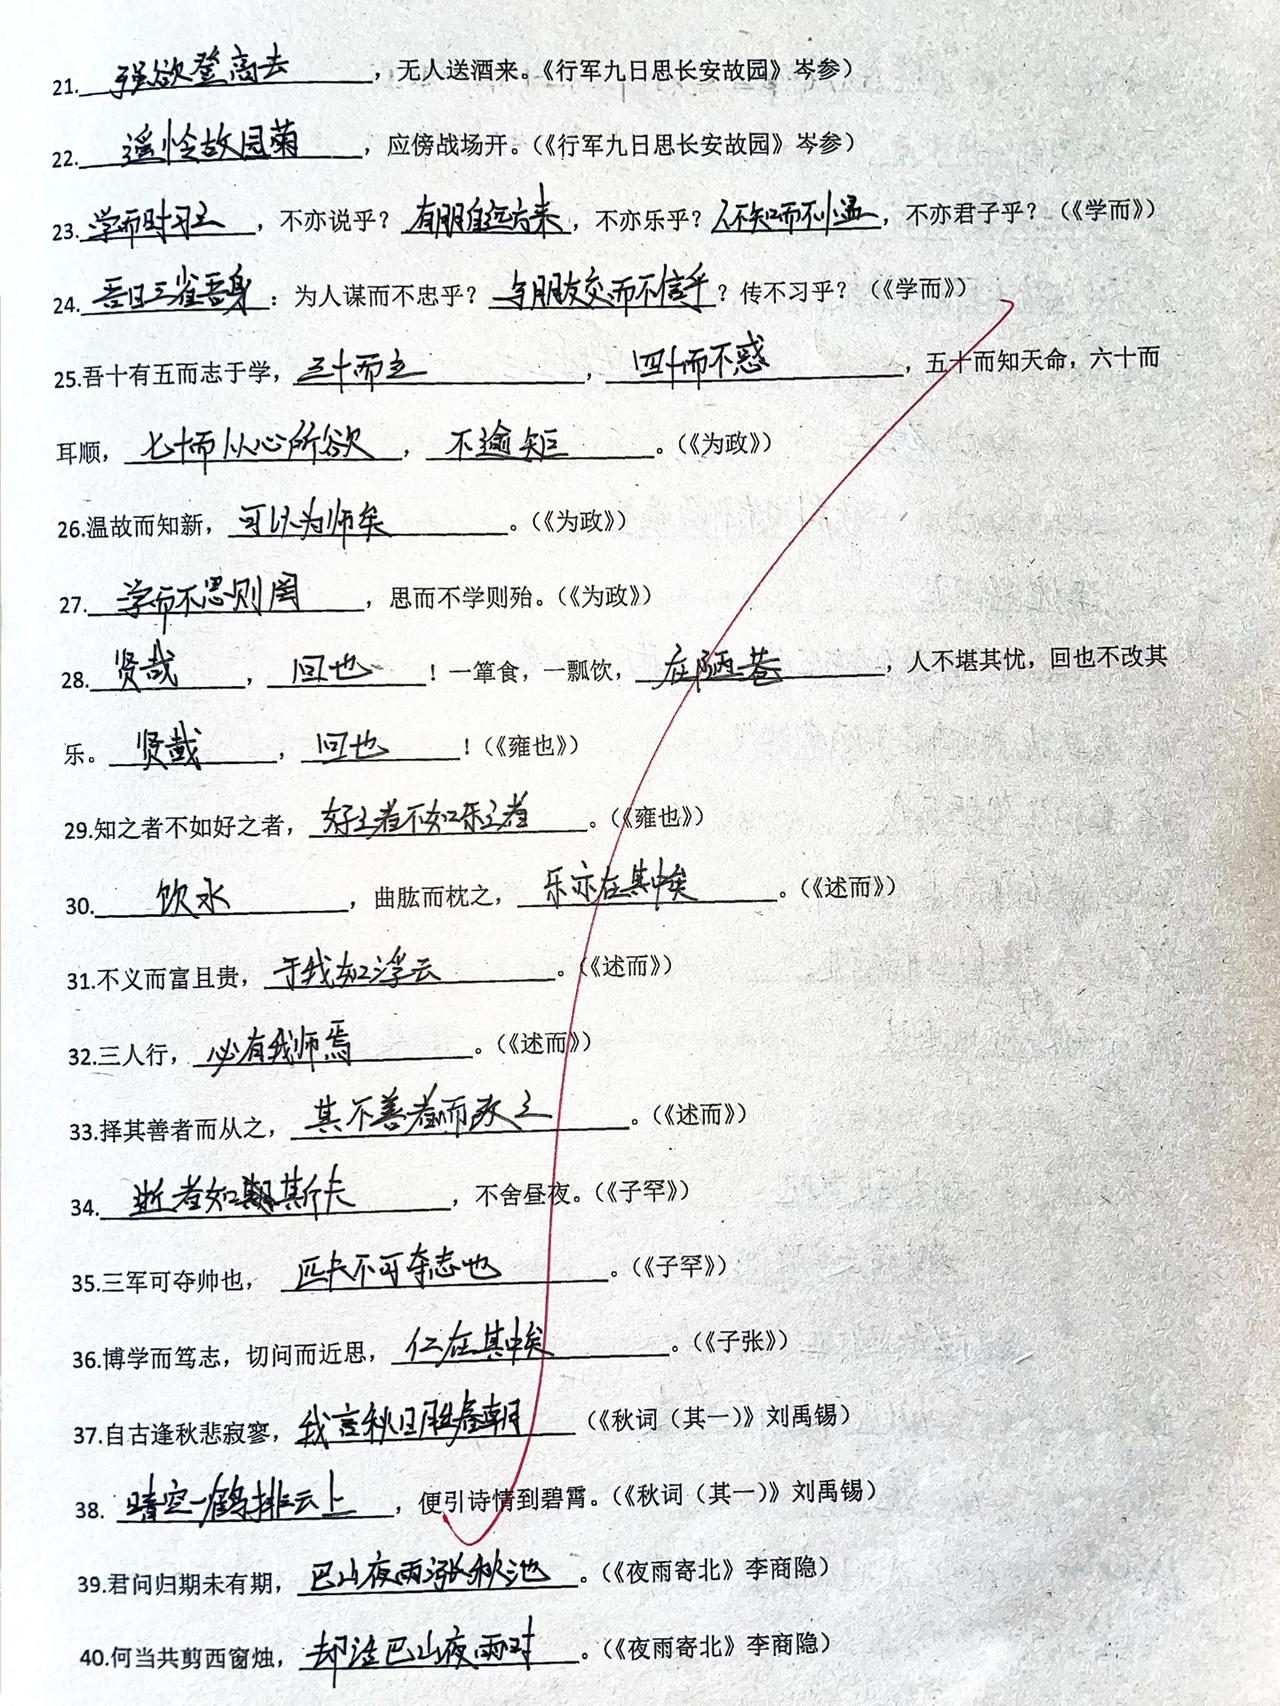 21. 强欲登高去，无人送酒来。《行军九日思长安故园》岑参）
22. 遥怜故园菊，应傍战场开。（《行军九日思长安故园》岑参）
23. 学而时习之，不亦说乎？有朋自远方来，不亦乐乎？人不知而不愠，不亦君子乎？（《学而》）
24. 吾日三省吾身：为人谋而不忠乎？与朋友交而不信乎？传不习乎？（《学而》）
25.吾十有五而志于学，三十而立，四十而不惑，五十而知天命，六十而
耳顺，七十而从心所欲，不逾矩。（《为政》）
26.温故而知新，可以为师矣。（《为政》）
27. 学而不思则罔，思而不学则殆。（《为政》）
28. 贤哉，回也！一箪食，一瓢饮，在陋巷，人不堪其忧，回也不改其
乐。贤哉，回也！（《雍也》）
29.知之者不如好之者，好之者不如乐之者。（《雍也》）
30. 饮水，曲肱而枕之，乐亦在其中矣。（《述而》）
31.不义而富且贵，于我如浮云。（《述而》）
32.三人行，必有我师焉。（《述而》）
33.择其善者而从之，其不善者而改之。（《述而》）
34. 逝者如斯夫，不舍昼夜。（《子罕》）
35.三军可夺帅也，匹夫不可夺志也。（《子罕》）
36.博学而笃志，切问而近思，仁在其中矣。（《子张》）
37.自古逢秋悲寂寥，我言秋日胜春朝（《秋词（其一）》刘禹锡）
38. 晴空一鹤排云上，便引诗情到碧霄。（《秋词（其一）》刘禹锡）
39.君问归期未有期，巴山夜雨涨秋池。（《夜雨寄北》李商隐）
40.何当共剪西窗烛，却话巴山夜雨时。（《夜雨寄北》李商隐）